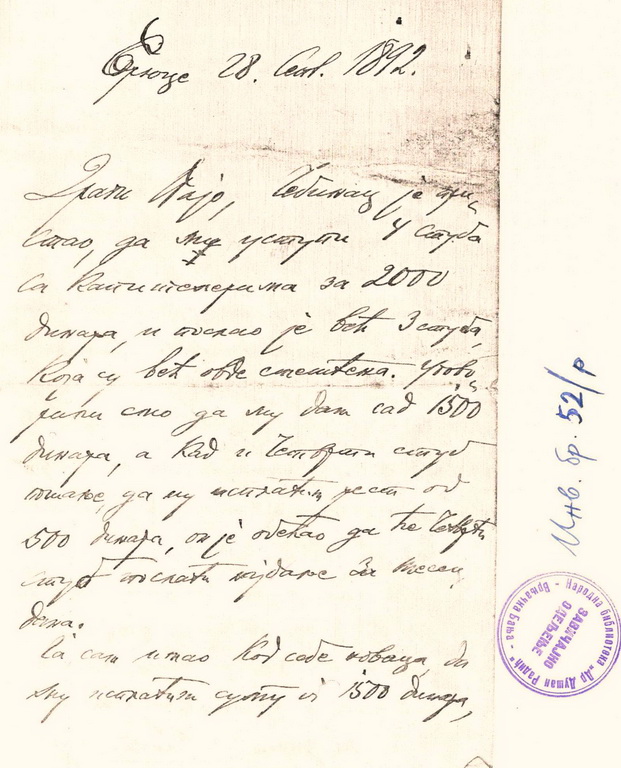 28. Септ. 1892.
Драги Пајо, је при-
стао, да ми уступи 4 стуба
са капителерима за 2000
динара, и послао је већ 3 стуба,
која су већ овде смештена. Угово-
рили смо да му дам сад 1500
динара, а кад и четврти стуб
пошаље, да му исплатим рест од
500 динара, он је обећао да ће четврти
стуб послати најдаље за месец
дана.
Ја сам имао код себе новаца, да
му исплатим суму од 1500 динара,
Инв. бр. 52/р
библиотека „Др Душан Радић" - Врњачка Бања -
ЗАВИЧАЈНО
ОДЕЉЕЊЕ